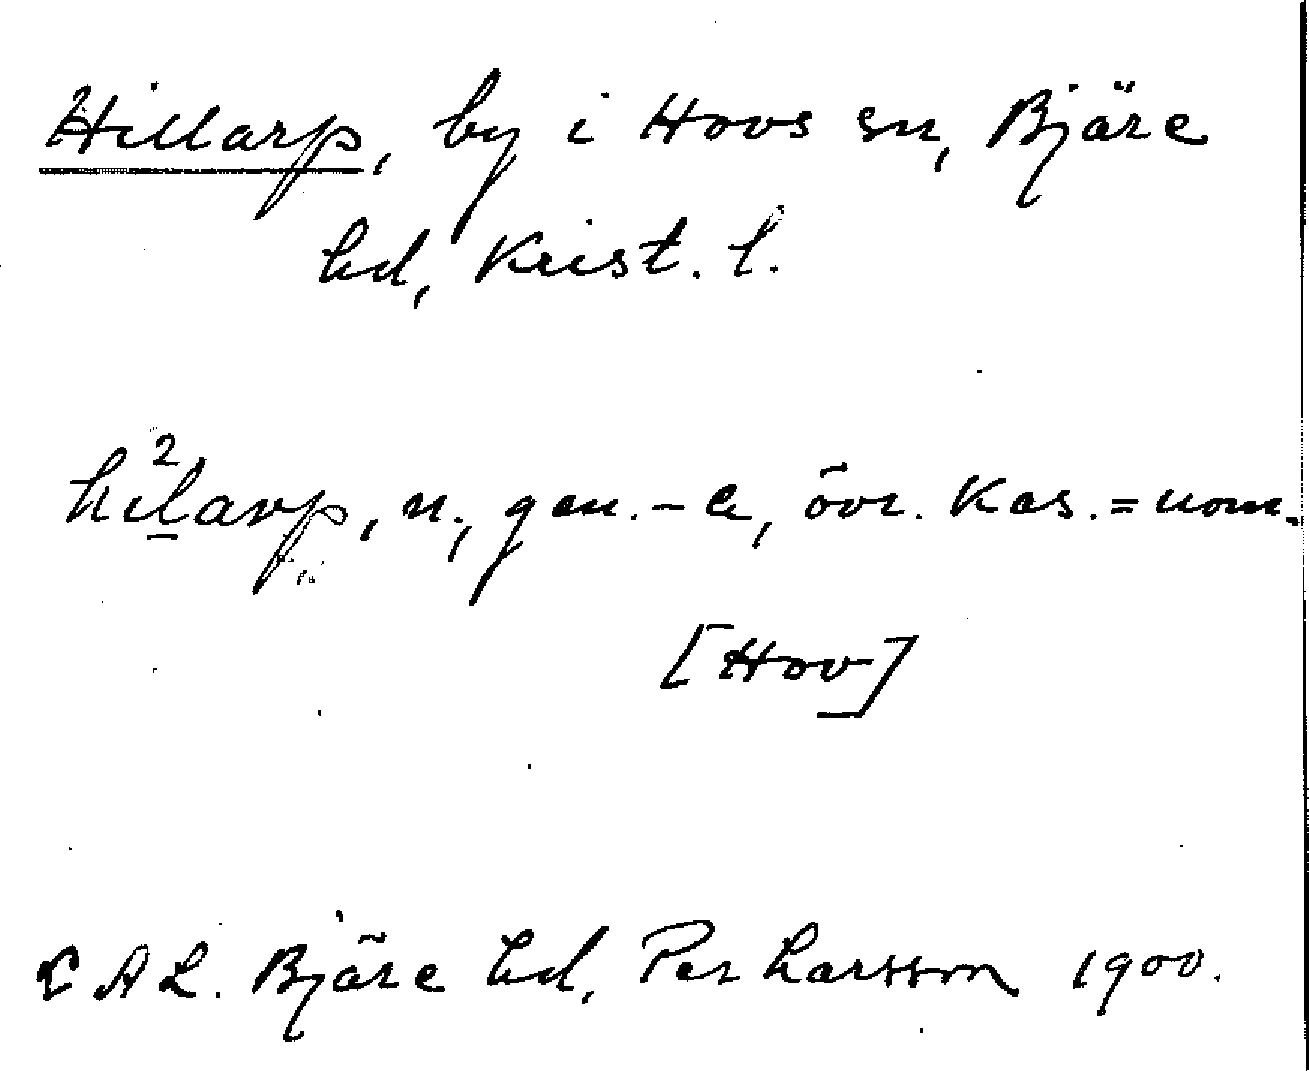 Hillarp, by i Hovs sn, Bjäre
hd, Krist. l.
hi²larp, n., gen. -a, övr. kas. = nom.
[Hov]
LAL. Bjäre hd, Per Larsson 1900.